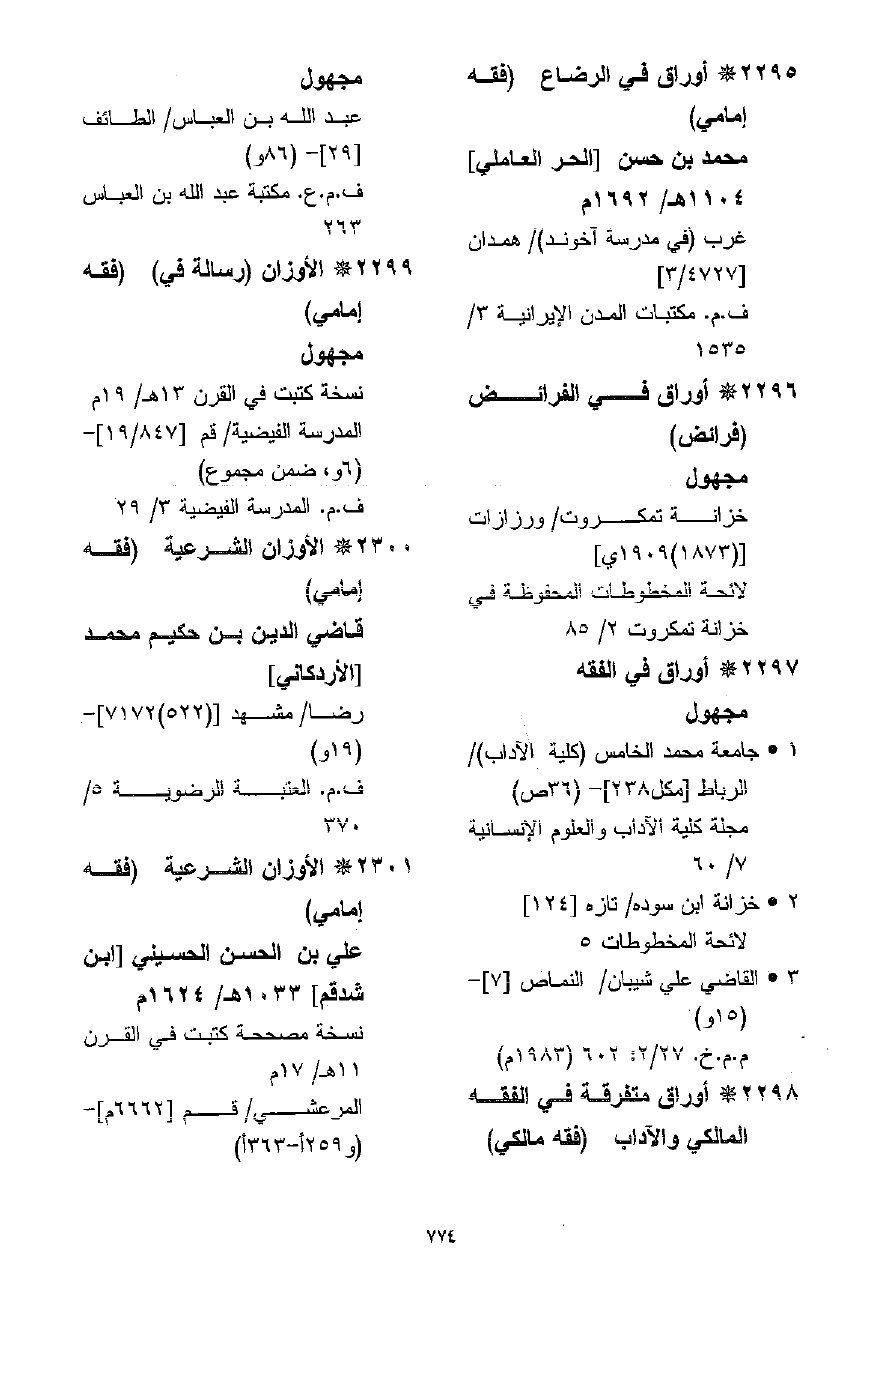 ٢٢٩٥ * أوراق في الرضاع (فقه
إمامي)
محمد بن حسن [الحر العاملي]
١١٠٤هـ/ ١٦٩٢م
غرب (في مدرسة آخوند)/ همدان
[٣/٤٧٢٧]
ف.م. مكتبات المدن الإيرانية ٣/
١٥٣٥
٢٢٩٦ * أوراق في الفرائض
(فرائض)
مجهول
خزانة تمكروت/ ورزازات
[(١٨٧٣)١٩٠٩ي]
لائحة المخطوطات المحفوظة في
خزانة تمكروت ٢/ ٨٥
٢٢٩٧ * أوراق في الفقه
مجهول
١ • جامعة محمد الخامس (كلية الآداب)/
الرباط [مكل٢٣٨]– (٣٦ص)
مجلة كلية الآداب والعلوم الإنسانية
٧/ ٦٠
٢ • خزانة ابن سوده/ تازه [١٢٤]
لائحة المخطوطات ٥
٣ • القاضي علي شيبان/ النماص [٧]–
(١٥و)
م.م.خ. ٢/٢٧: ٦٠٢ (١٩٨٣م)
٢٢٩٨ * أوراق متفرقة في الفقه
المالكي والآداب (فقه مالكي)
مجهول
عبد الله بن العباس/ الطائف
[٢٩]– (٨٦و)
ف.م.ع. مكتبة عبد الله بن العباس
٢٦٣
٢٢٩٩ * الأوزان (رسالة في) (فقه
إمامي)
مجهول
نسخة كتبت في القرن ١٣هـ/ ١٩م
المدرسة الفيضية/ قم [١٩/٨٤٧]–
(٦و، ضمن مجموع)
ف.م. المدرسة الفيضية ٣/ ٢٩
٢٣٠٠ * الأوزان الشرعية (فقه
إمامي)
قاضي الدين بن حكيم محمد
[الأردكاني]
رضا/ مشهد [(٥٢٢)٧١٧٢]–
(١٩و)
ف.م. العتبة الرضوية ٥/
٣٧٠
٢٣٠١ * الأوزان الشرعية (فقه
إمامي)
علي بن الحسن الحسيني [ابن
شدقم] ١٠٣٣هـ/ ١٦٢٤م
نسخة مصححة كتبت في القرن
١١هـ/ ١٧م
المرعشي/ قم [٦٦٦٢م]–
(و٢٥٩أ–٣٦٣أ)
٧٧٤